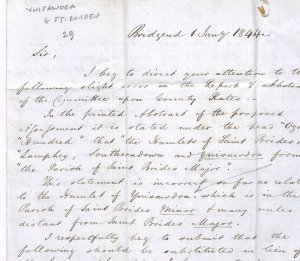 YNISAWDRA
& ST. BRIDES
29
Bridgend 1 Jany 1844
Sir,
I beg to direct your attention to the
following slight error in the Report & Abstract
of the Committee upon County Rates.
In the printed Abstract of the proposed
Assessment it is stated under the head "Og
Hundred" that the Hamlets of Saint Brides,
Lamphey, Southerndown and Ynisawdra form
the Parish of Saint Brides Major.
This statement is incorrect so far as relates
to the Hamlet of Ynisawdra which is in the
Parish of Saint Brides Minor & many miles
distant from Saint Brides Major.
I respectfully beg to submit that the
following should be substituted in lieu of